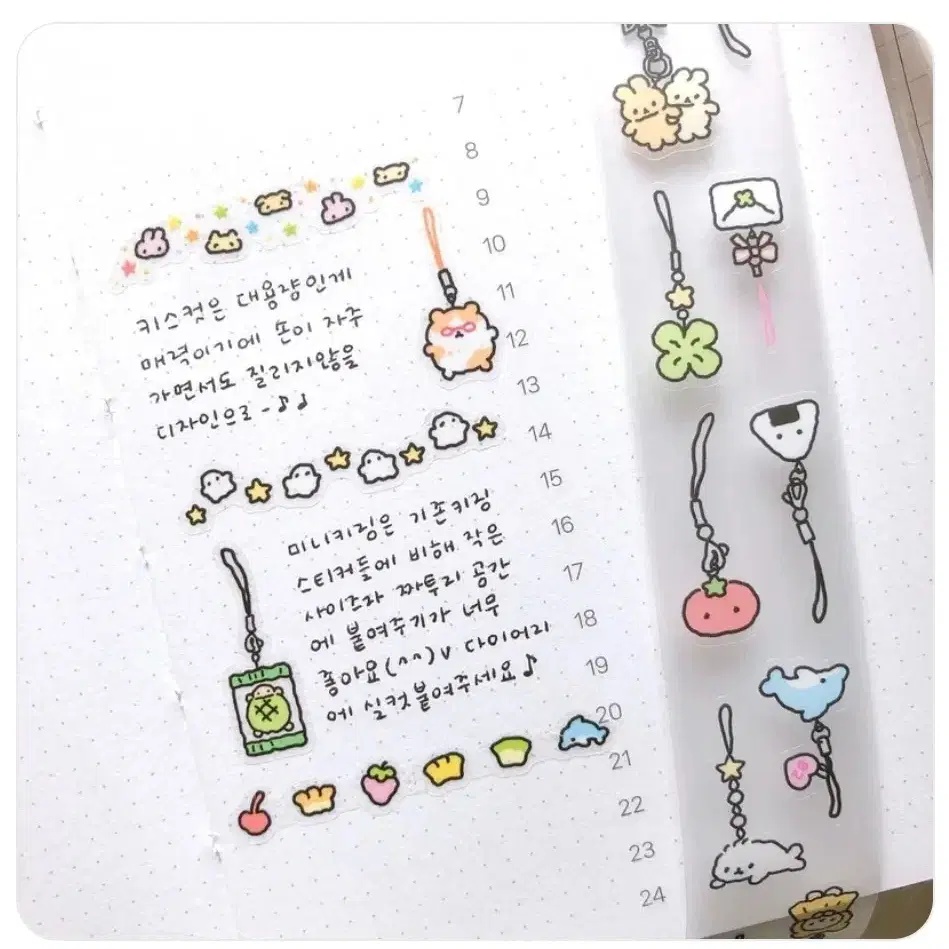 7
8
9
10
11
12
13
14
15
16
17
18
19
20
21
22
23
24
키스컷은 대용량인게
매력이기에 손이 자주
가면서도 질리지않을
디자인으로-♪♩
미니키링은 기존키링
스티커들에 비해 작은
사이즈라 짜투리 공간
에 붙여주기가 너무
좋아요(^^)v 다이어리
에 실컷 붙여주세요♪